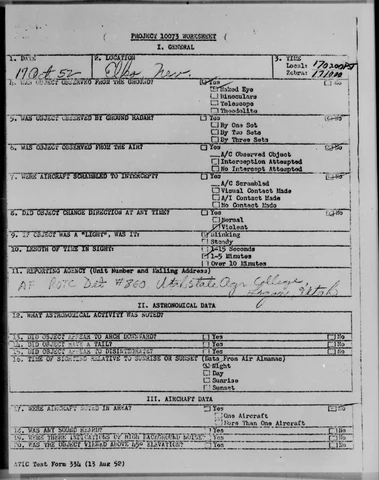 PROJECT 10073 WORKSHEET
I. GENERAL
1. DATE
2. LOCATION
3. TIME
17 Oct 52
Elko Nev.
Local:
Zebra:
4. WAS OBJECT OBSERVED FROM THE GROUND?
Yes
No
Naked Eye
Binoculars
Telescope
Theodolite
5. WAS OBJECT OBSERVED BY GROUND RADAR?
Yes
No
By One Set
By Two Sets
By Three Sets
6. WAS OBJECT OBSERVED FROM THE AIR?
Yes
No
A/C Observed Object
Interception Attempted
No Intercept Attempted
7. WERE AIRCRAFT SCRAMBLED TO INTERCEPT?
Yes
No
A/C Scrambled
Visual Contact Made
A/I Contact Made
No Contact Made
8. DID OBJECT CHANGE DIRECTION AT ANY TIME?
Yes
No
Normal
Violent
9. IF OBJECT WAS A "LIGHT", WAS IT:
Blinking
Steady
10. LENGTH OF TIME IN SIGHT:
1-15 Seconds
1-5 Minutes
Over 10 Minutes
11. REPORTING AGENCY (Unit Number and Mailing Address)
AF ROTC Det #860 Utah State Agr. College,
Logan, Utah
II. ASTRONOMICAL DATA
12. WHAT ASTRONOMICAL ACTIVITY WAS NOTED?
13. DID OBJECT APPEAR TO ARCH DOWNWARD?
Yes
No
14. DID OBJECT HAVE A TAIL?
Yes
No
15. DID OBJECT APPEAR TO DISINTEGRATE?
Yes
No
16. TIME OF SIGHTING RELATIVE TO SUNRISE OR SUNSET (Data From Air Almanac)
Night
Day
Sunrise
Sunset
III. AIRCRAFT DATA
17. WERE AIRCRAFT NOTED IN AREA?
Yes
No
One Aircraft
More Than One Aircraft
18. WAS ANY SOUND HEARD?
Yes
No
19. WERE THERE INDICATIONS OF HIGH BACKGROUND NOISE?
Yes
No
20. WAS THE OBJECT VIEWED ABOVE 45° ELEVATION?
Yes
No
ATIC Test Form 334 (13 Aug 52)